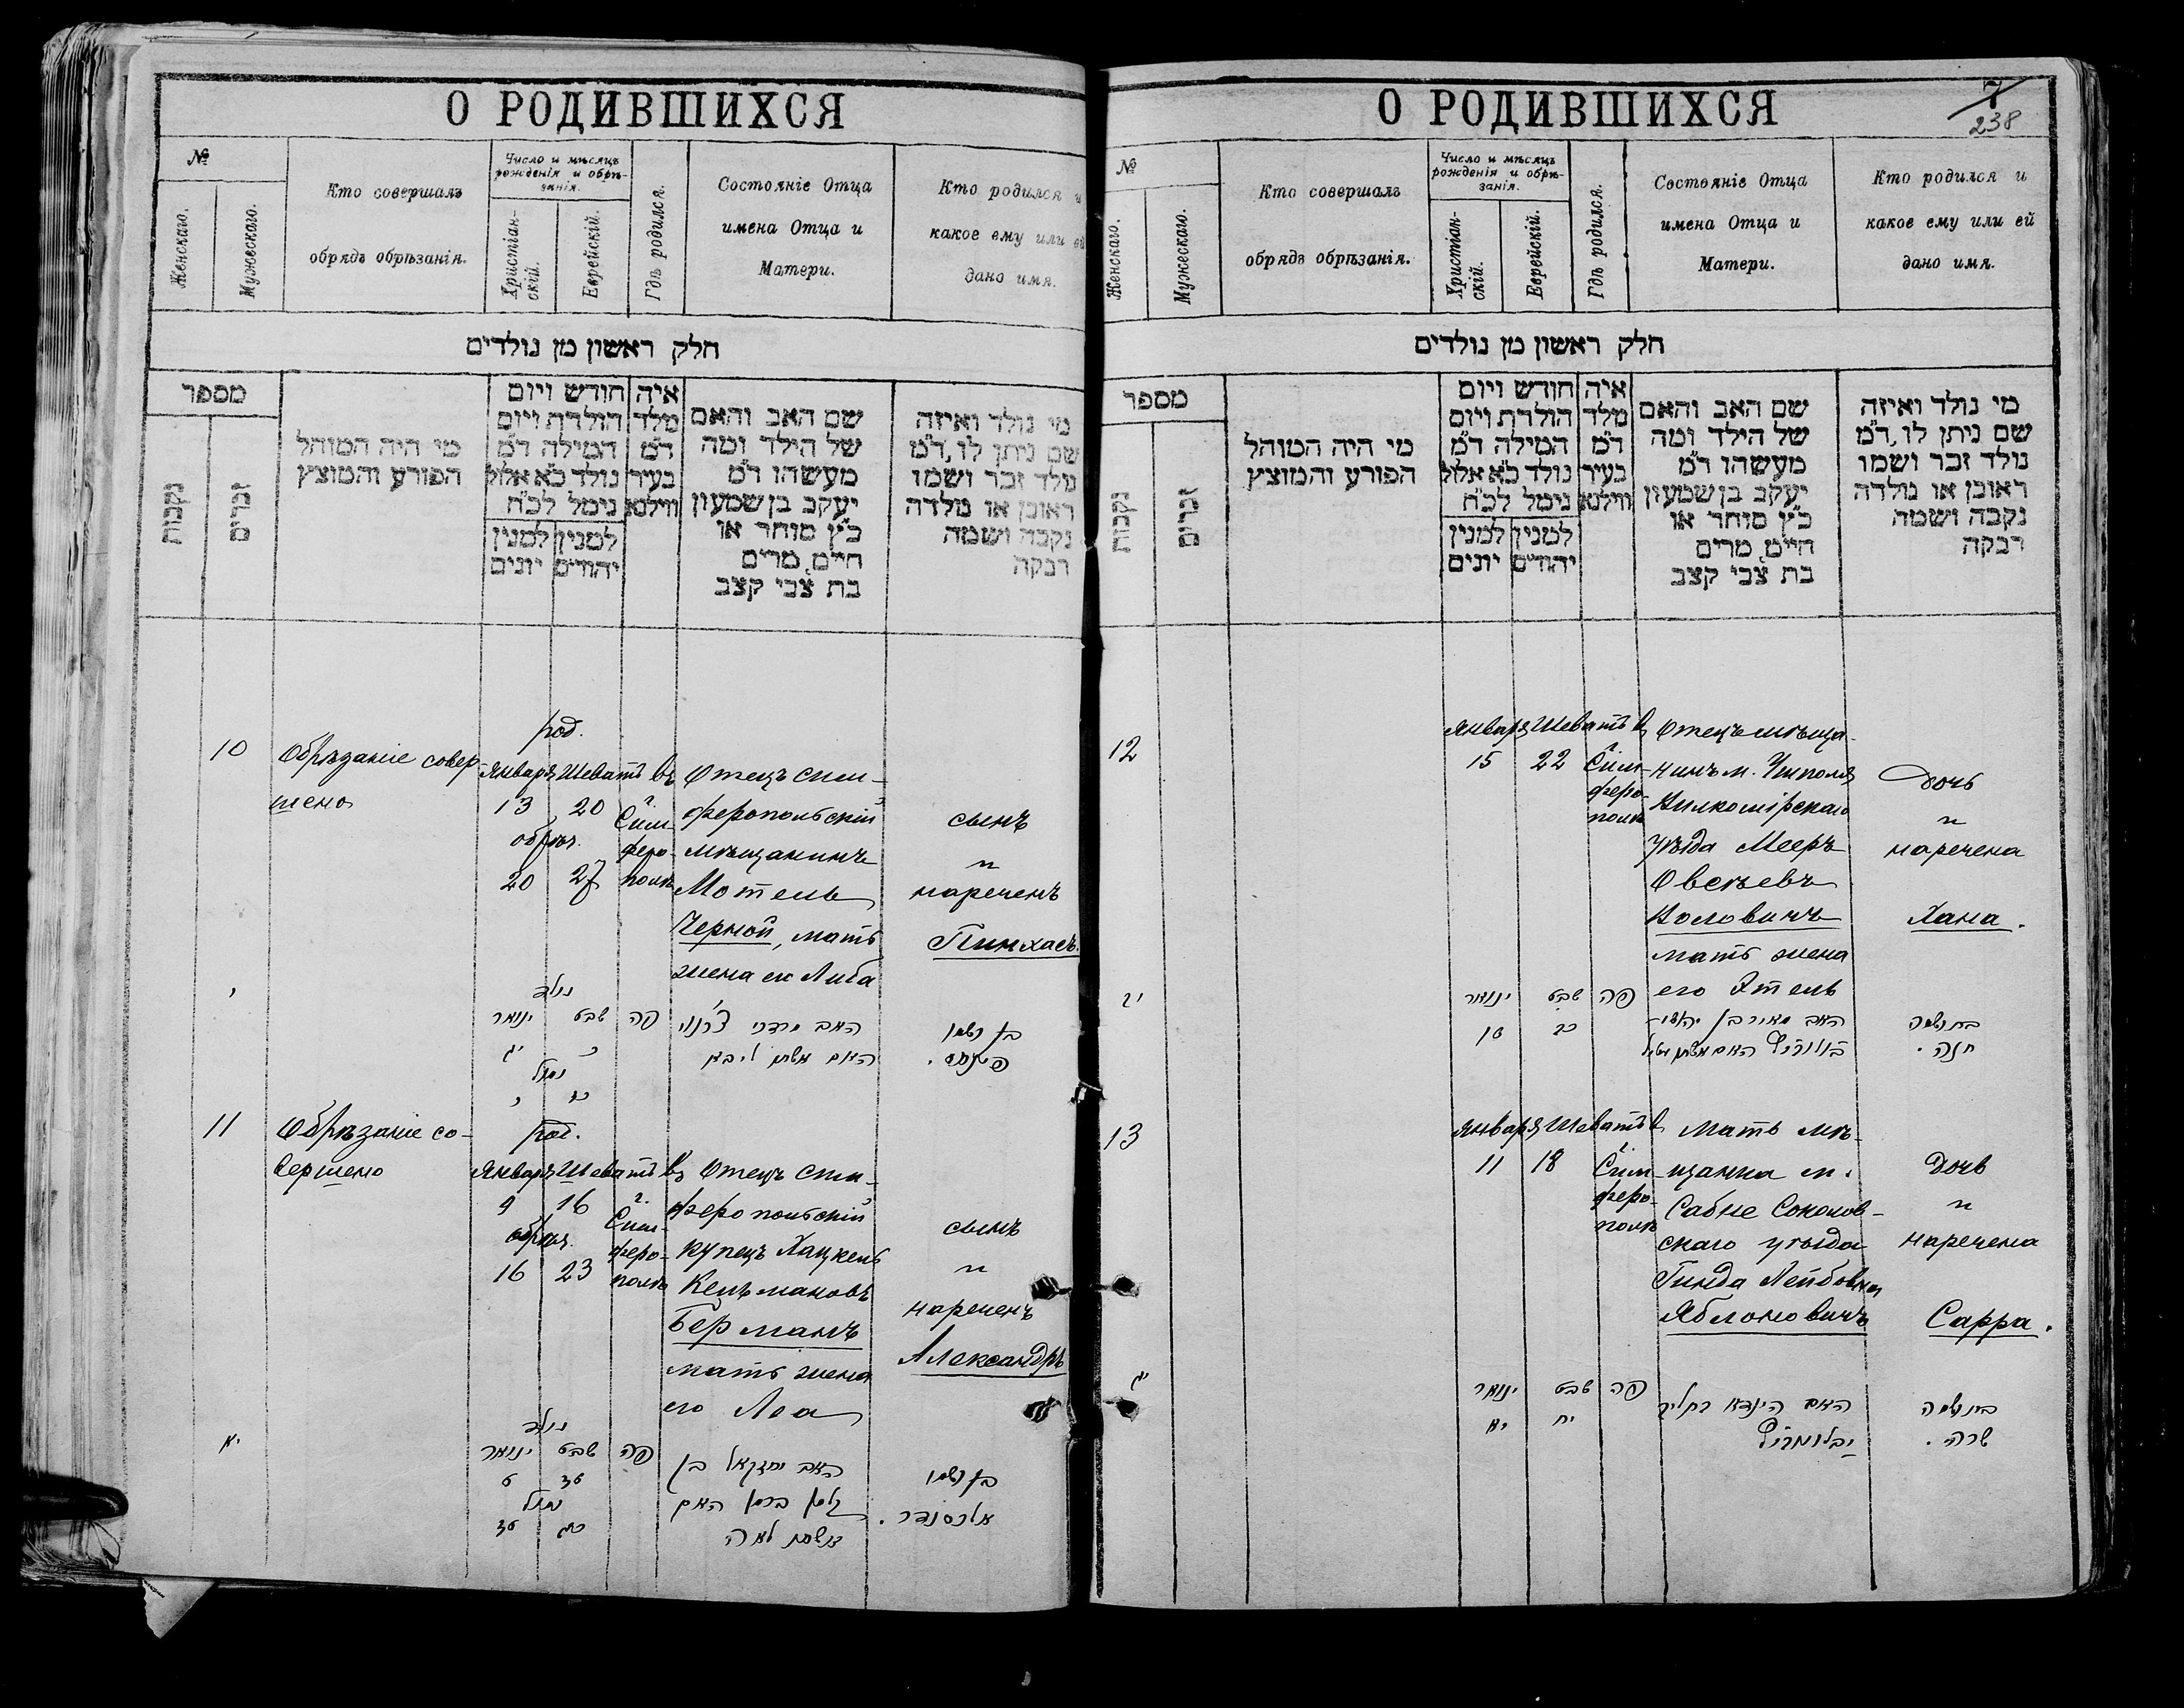 О РОДИВШИХСЯ
№
Женскаго.
Мужескаго.
Кто совершалъ
обрядъ обрѣзанія.
Число и мѣсяцъ
рожденія и обрѣ-
занія.
Христіан-
скій.
Еврейскій.
Гдѣ родился.
Состояніе Отца
имена Отца и
Матери.
Кто родился и
какое ему или ей
дано имя.
חלק ראשון מן נולדים
מספר
נקבות
זכרים
מי היה המוהל
הפורע והמוצץ
חודש ויום
הולדת ויום
המילה ד"מ
נולד כ"א אלול
נימל לכ"ח
למנין למנין
יהודים יונים
איה
מלד
ד"מ
בעיר
ווילנא
שם האב והאם
של הילד ומה
מעשהו ד"מ
יעקב בן שמעון
כ"ץ סוחר או
חיים, מרים
בת צבי קצב
מי נולד ואיזה
שם ניתן לו, ד"מ
נולד זכר ושמו
ראובן או נולדה
נקבה ושמה
רבקה
10
Обрѣзаніе совер-
шено
род.
Января Шеватъ
13 20
обрѣз.
20 27
въ
г.
Сим-
феро-
полѣ
Отецъ сим-
феропольскій
мѣщанинъ
Мотель
Черной, мать
жена ек Либа
сынъ
и
нареченъ
Пинхасъ.
י
נולד
ינואר שבט פה
יג כ
נמול
כ כז
האב מרדכי צ'רנוי
האם אשתו ליבא
בן ושמו
פינחס .
11
Обрѣзаніе со-
вершено
род.
Января Шеватъ
9 16
обрѣз.
16 23
въ
г.
Сим-
феро-
полѣ
Отецъ сим-
феропольскій
купецъ Хацкель
Кельмановъ
Берманъ
мать жена
его Леа
сынъ
и
нареченъ
Александръ
יא
נולד
ינואר שבט פה
ט טז
נמול
טז כג
האב יחזקאל בן
קלמן ברמן האם
אשתו לאה
בן ושמו
אלכסנדר .
О РОДИВШИХСЯ
7
238
№
Женскаго.
Мужескаго.
Кто совершалъ
обрядъ обрѣзанія.
Число и мѣсяцъ
рожденія и обрѣ-
занія.
Христіан-
скій.
Еврейскій.
Гдѣ родился.
Состояніе Отца
имена Отца и
Матери.
Кто родился и
какое ему или ей
дано имя.
חלק ראשון מן נולדים
מספר
נקבות
זכרים
מי היה המוהל
הפורע והמוצץ
חודש ויום
הולדת ויום
המילה ד"מ
נולד כ"א אלול
נימל לכ"ח
למנין למנין
יהודים יונים
איה
מלד
ד"מ
בעיר
ווילנא
שם האב והאם
של הילד ומה
מעשהו ד"מ
יעקב בן שמעון
כ"ץ סוחר או
חיים, מרים
בת צבי קצב
מי נולד ואיזה
שם ניתן לו, ד"מ
נולד זכר ושמו
ראובן או נולדה
נקבה ושמה
רבקה
12
Января Шеватъ
15 22
въ
г.
Сим-
феро-
полѣ
Отецъ мѣща-
нинъ м. Ушполя
Вилкомірскаго
уѣзда Мееръ
Овсѣевъ
Воловичъ
мать жена
его Этель
дочь
и
наречена
Хана.
יב
ינואר שבט פה
טו כב
האב מאיר בן
האם אשתו
בת ושמה
חנה .
13
Января Шеватъ
11 18
въ
г.
Сим-
феро-
полѣ
Мать мѣ-
щанка м.
Сабне Соколов-
скаго уѣзда
Гинда Лейбовна
Яблоновичъ
дочь
и
наречена
Сарра.
יג
ינואר שבט פה
יא יח
האם הינדא
יבלונוביץ
בת ושמה
שרה .